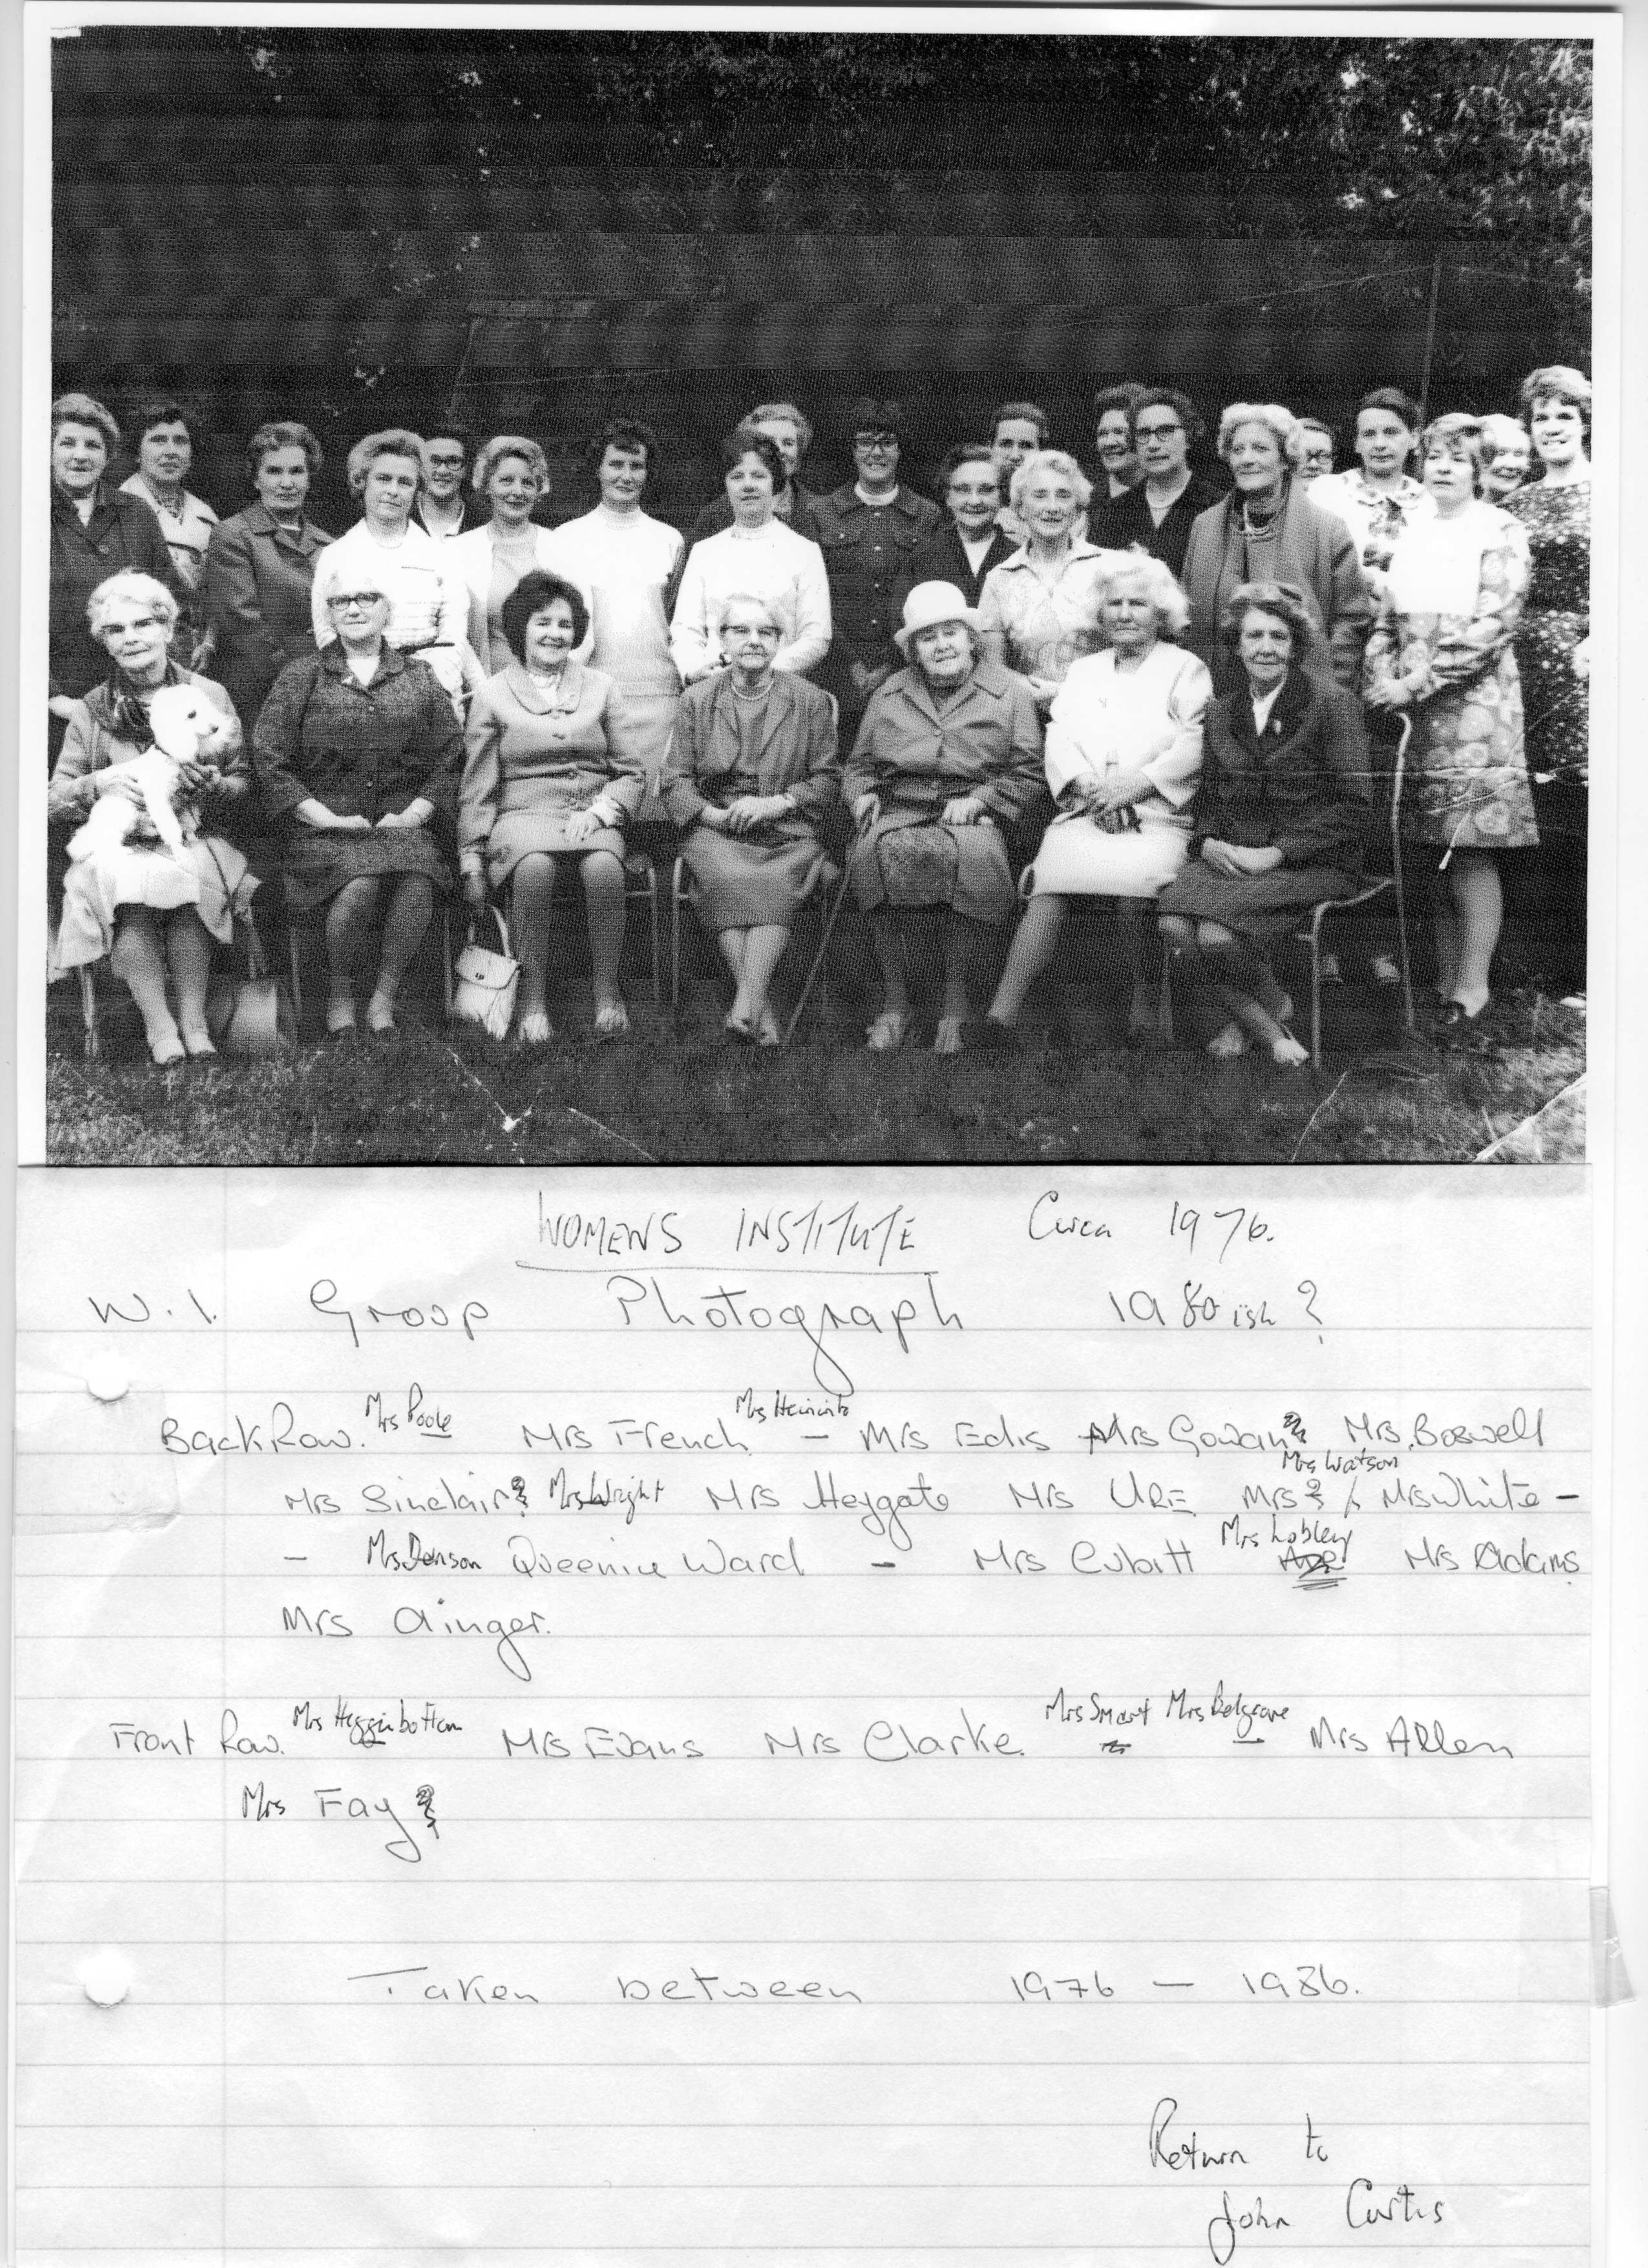 WOMENS INSTITUTE Circa 1976.
W.I. Group Photograph 1980 ish ?
Mrs Poole Mrs Heininto
Back Row. Mrs French. – Mrs Edis Mrs Gowan Mrs. Boswell
Mrs Watson
Mrs Sinclair Mrs Wright Mrs Heygate Mrs URE Mrs ? Mrs White –
Mrs Lobley
– Mrs Denson Queenie Ward – Mrs Cubitt Mrs Adams
Mrs Ainger.
Mrs Higginbottom Mrs Smart Mrs Belgrave
Front Row. Mrs Evans Mrs Clarke. Mrs Allen
Mrs Fay
Taken between 1976 – 1986.
Return to
John Curtis